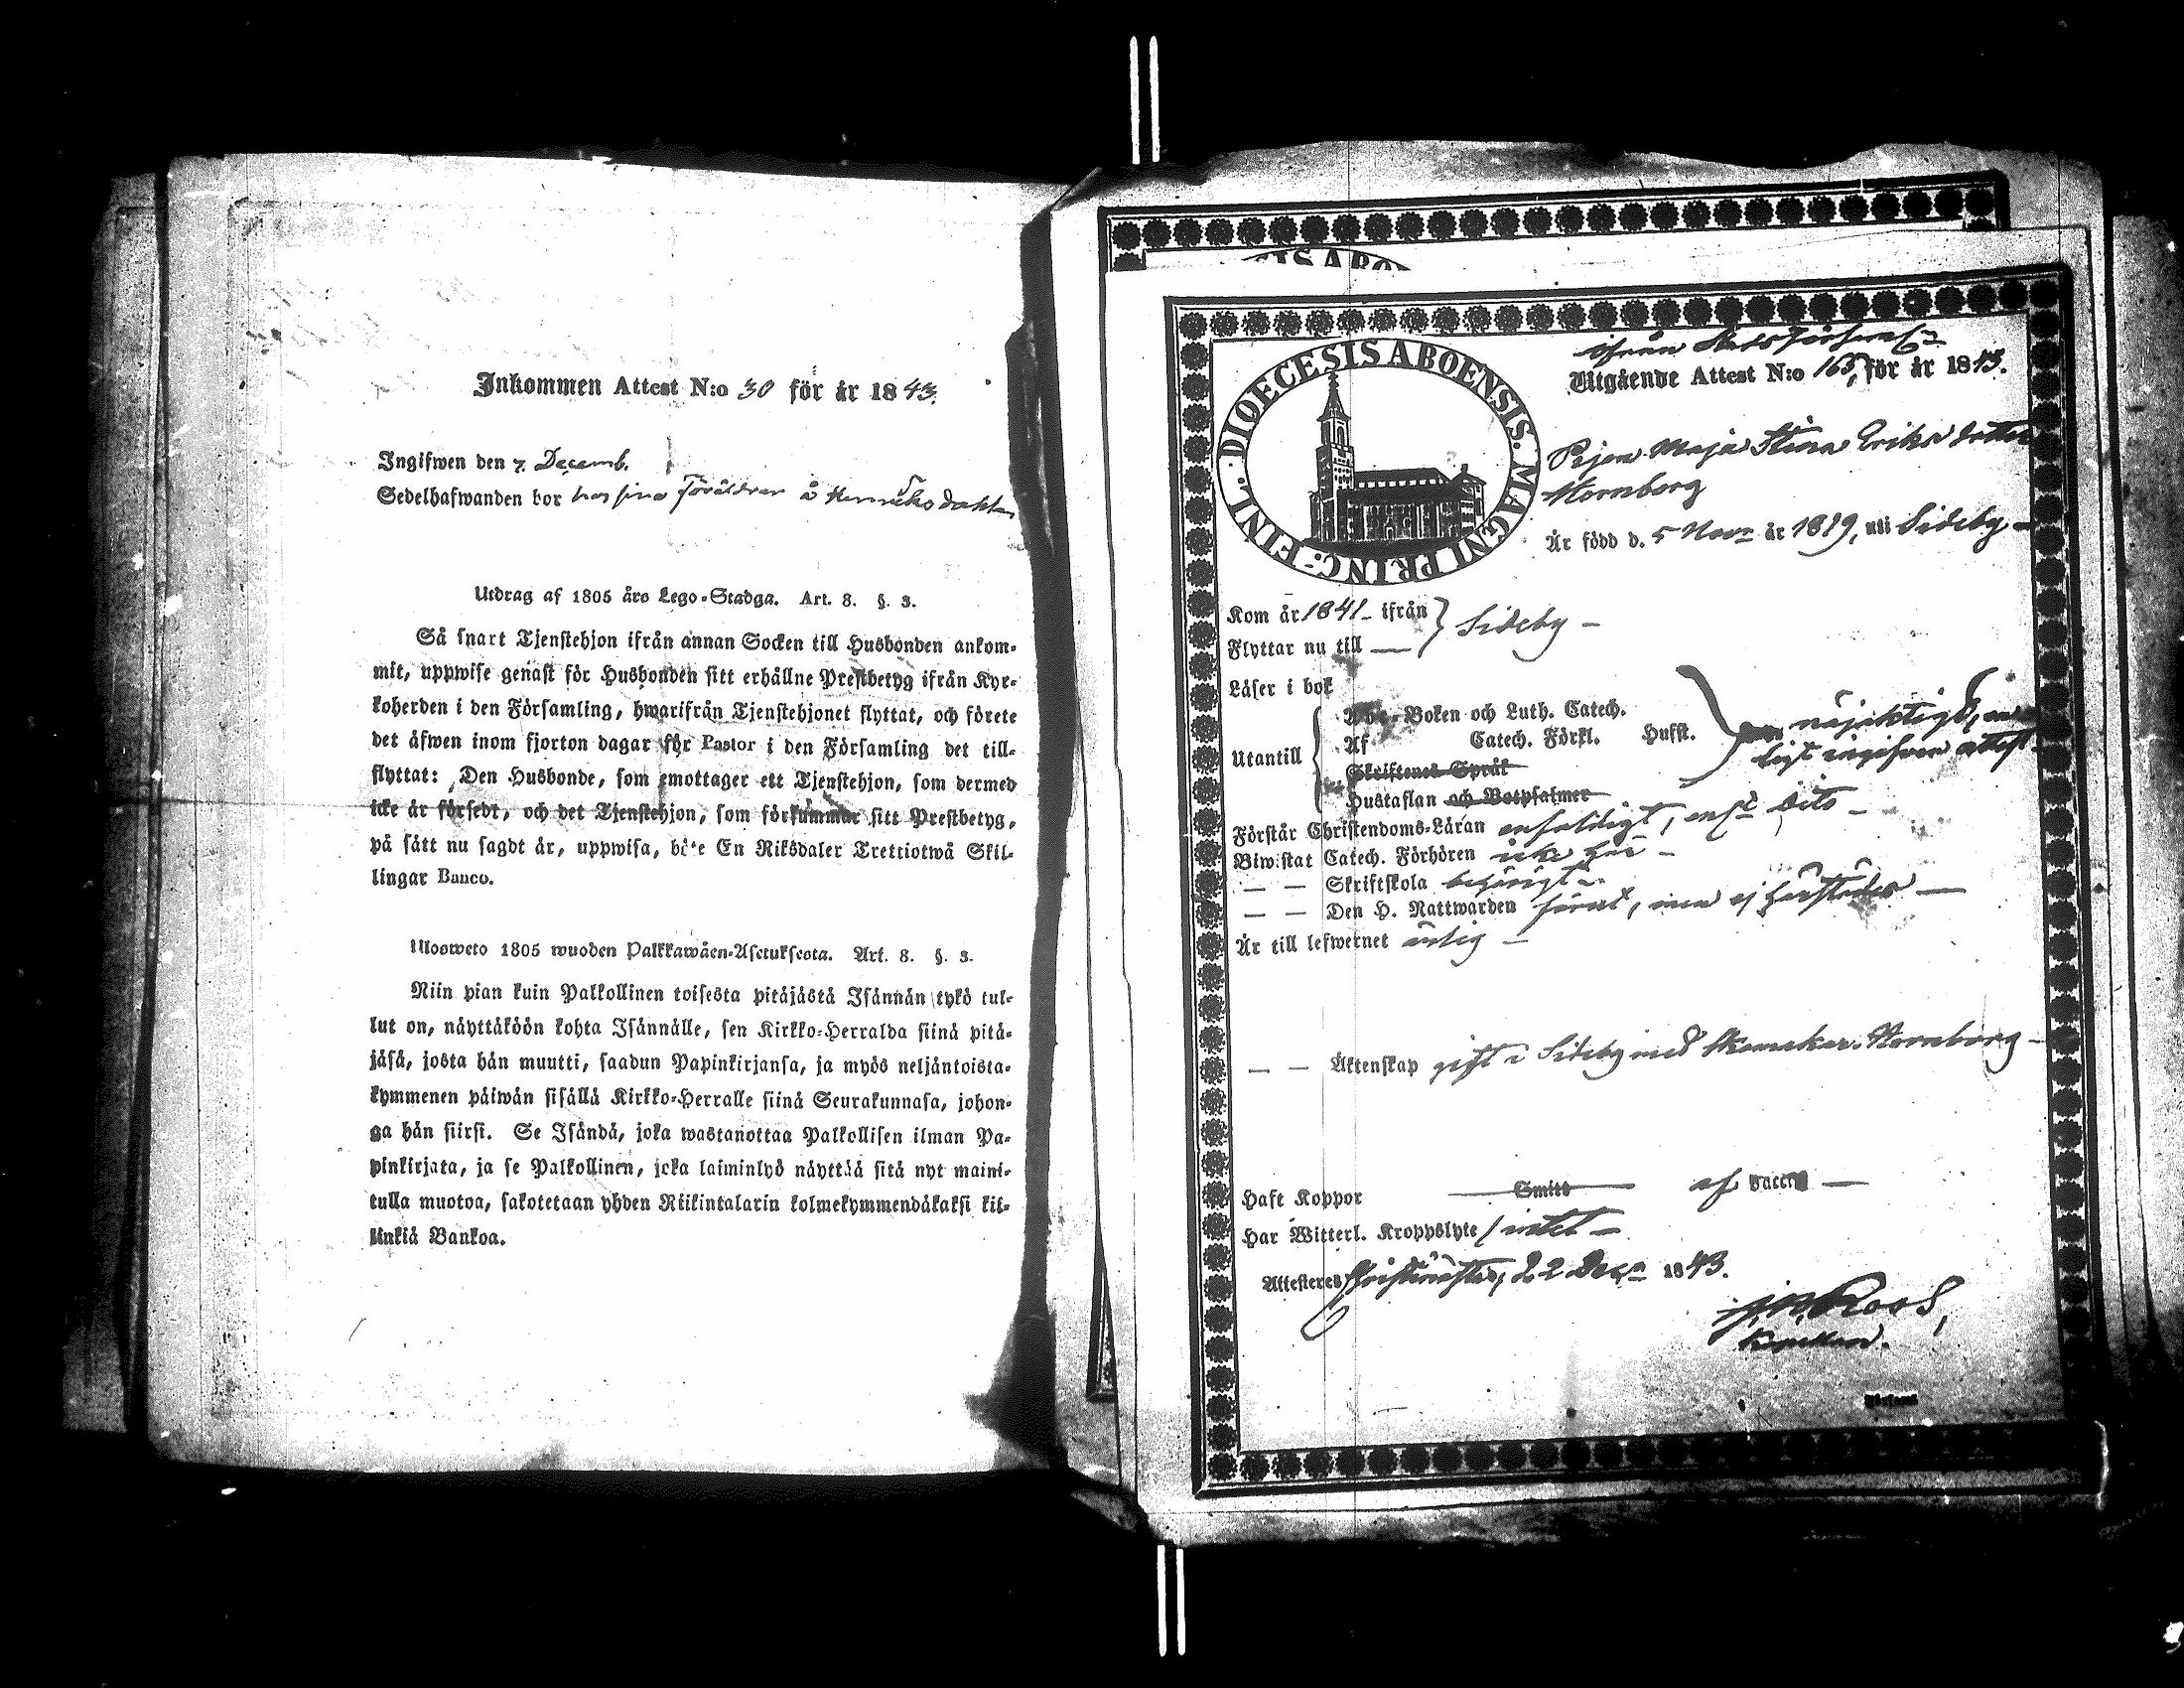 Inkommen Attest N:o 30 för år 1843.
Ingifwen den 7. Decemb.
Sedelhafwanden bor hos sina Föräldrar å
Utdrag af 1805 års Lego-Stadga. Art. 8. §. 3.
Så snart Tjenstehjon ifrån annan Socken till Husbonden ankom-
mit, uppwise genast för Husbonden sitt erhållne Prestbetyg ifrån Kyr-
koherden i den Församling, hwarifrån Tjenstehjonet flyttat, och förete
det äfwen inom fjorton dagar för Pastor i den Församling det till-
flyttat: Den Husbonde, som emottager ett Tjenstehjon, som dermed
icke är försedt, och det Tjenstehjon, som försummar sitt Prestbetyg,
på sätt nu sagdt är, uppwisa, böte En Riksdaler Trettiotwå Skil-
lingar Banco.
Ulosweto 1805 wuoden Palkkawäen-Asetuksesta. Art. 8. §. 3.
Niin pian kuin Palkollinen toisesta pitäjästä Isännän tykö tul-
lut on, näyttäköön kohta Isännälle, sen Kirkko-Herralda siinä pitä-
jäsä, josta hän muutti, saadun Papinkirjansa, ja myös neljäntoista-
kymmenen päiwän sisällä Kirkko-Herralle siinä Seurakunnasa, johon-
ga hän siirsi. Se Isändä, joka wastanottaa Palkollisen ilman Pa-
pinkirjata, ja se Palkollinen, joka laiminlyö näyttää sitä nyt maini-
tulla muotoa, sakotetaan yhden Riikintalarin kolmekymmendäkaksi kil-
linkiä Bankoa.
SIS ABO
DIOECESIS ABOENSIS. MAGNI PRINC. FINL.
ifrån
Utgående Attest N:o 165, för år 1843.
Pigan Maja Stina Eriks dotter
Hornborg
Är född d. 5 Nov: år 1819, uti Sideby
Kom år 1841 ifrån } Sideby
Flyttar nu till
Läser i bok
Abc-Boken och Luth. Catech.
Utantill { Af Catech. Förkl. Husst.
Skriftenes Språk
Hustaflan och Botpsalmer
nöjaktigt, en-
ligt ingifven attest
Förstår Christendoms-Läran enfaldigt, enl: dito
Biwistat Catech. Förhören icke här
— — Skriftskola behörigt
— — Den H. Nattwarden förut, men ej härstädes
Är till lefwernet ärlig
— — Äktenskap gift i Sideby med Skomakar. Hornborg
Haft Koppor Smitt af vaccin
Har Witterl. Kroppslyte intet
Attesteres Christinestad, d. 2 Dec: 1843.
Roos,
Kapellan.
Församl.